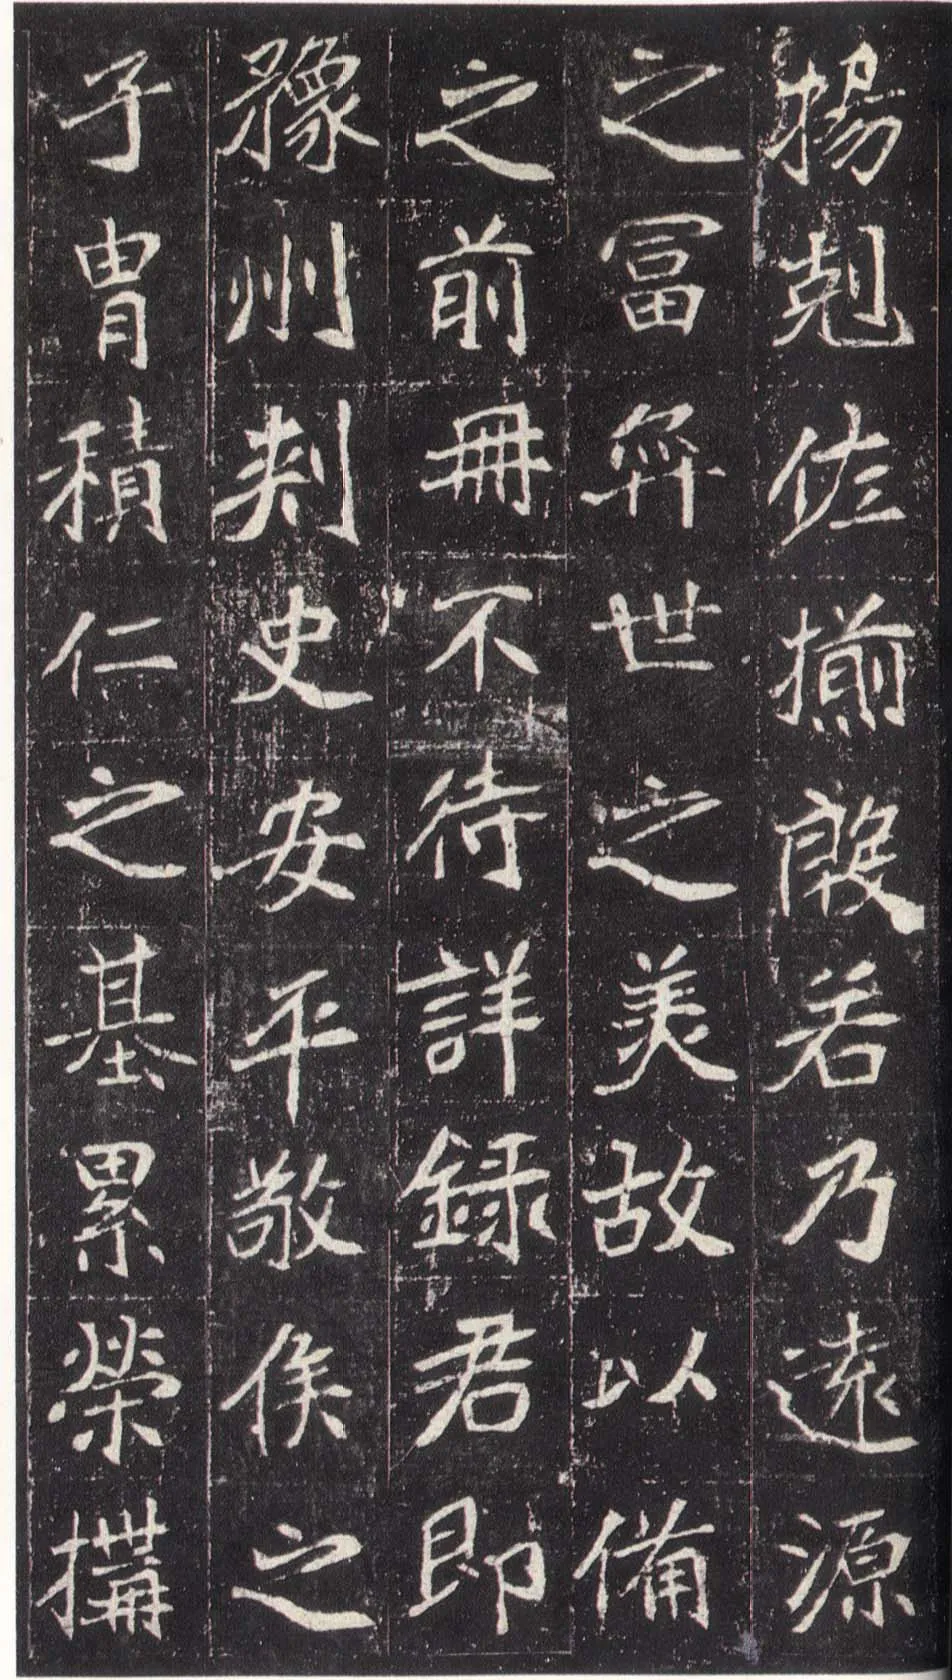 揚克佐揃殷若乃遠源
之富弈世之美故以備
之前冊不待詳録君即
豫州刾史安平敬侯之
子胄積仁之基累榮搆